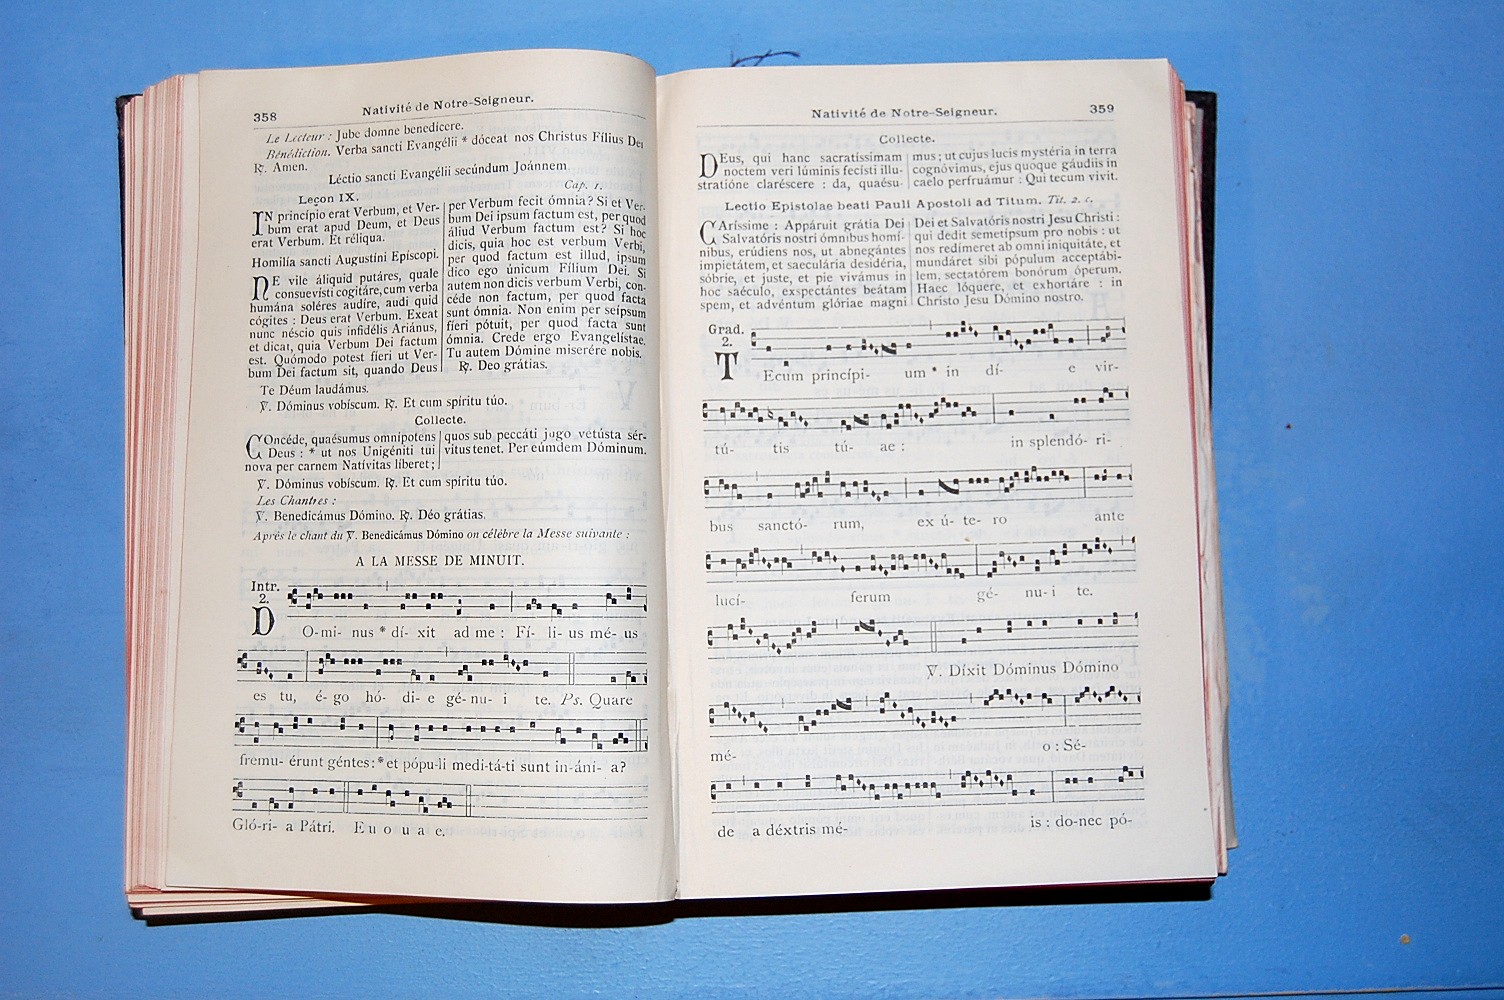 358
Nativité de Notre-Seigneur.
Le Lecteur : Jube domne benedícere.
Bénédiction. Verba sancti Evangélii * dóceat nos Christus Fílius Dei
℟. Amen.
Léctio sancti Evangélii secúndum Joánnem
Cap. 1.
Leçon IX.
IN princípio erat Verbum, et Ver-
bum erat apud Deum, et Deus
erat Verbum. Et réliqua.
Homilía sancti Augustíni Epíscopi.
NE vile áliquid putáres, quale
consuevísti cogitáre, cum verba
humána soléres audíre, audi quid
cógites : Deus erat Verbum. Exeat
nunc néscio quis infidélis Ariánus,
et dicat, quia Verbum Dei factum
est. Quómodo potest fíeri ut Ver-
bum Dei factum sit, quando Deus
per Verbum fecit ómnia? Si et Ver-
bum Dei ipsum factum est, per quod
áliud Verbum factum est? Si hoc
dicis, quia hoc est verbum Verbi,
per quod factum est illud, ipsum
dico ego únicum Fílium Dei. Si
autem non dicis verbum Verbi, con-
céde non factum, per quod facta
sunt ómnia. Non enim per seípsum
fíeri pótuit, per quod facta sunt
ómnia. Crede ergo Evangelístae.
Tu autem Dómine miserére nobis.
℟. Deo grátias.
Te Déum laudámus.
℣. Dóminus vobíscum. ℟. Et cum spíritu túo.
Collecte.
COncéde, quaésumus omnípotens
Deus : * ut nos Unigéniti tui
nova per carnem Natívitas líberet;
quos sub peccáti jugo vetústa sér-
vitus tenet. Per eúmdem Dóminum.
℣. Dóminus vobíscum. ℟. Et cum spíritu túo.
Les Chantres :
℣. Benedicámus Dómino. ℟. Déo grátias.
Après le chant du ℣. Benedicámus Dómino on célèbre la Messe suivante :
A LA MESSE DE MINUIT.
Intr.
2.
DO-mi- nus * dí- xit ad me : Fí- li- us mé- us
es tu, é-go hó- di- e gé-nu- i te. Ps. Quare
fremu- érunt géntes : * et pópu-li medi-tá-ti sunt in-áni- a?
Gló-ri- a Pátri. E u o u a e.
359
Nativité de Notre-Seigneur.
Collecte.
DEus, qui hanc sacratíssimam
noctem veri lúminis fecísti illu-
stratióne claréscere : da, quaésu-
mus ; ut cujus lucis mystéria in terra
cognóvimus, ejus quoque gáudiis in
caelo perfruámur : Qui tecum vivit.
Lectio Epistolae beati Pauli Apostoli ad Titum. Tit. 2. c.
CAríssime : Appáruit grátia Dei
Salvatóris nostri ómnibus homí-
nibus, erúdiens nos, ut abnegántes
impietátem, et saeculária desidéria,
sóbrie, et juste, et pie vivámus in
hoc saéculo, exspectántes beátam
spem, et advéntum glóriae magni
Dei et Salvatóris nostri Jesu Christi :
qui dedit semetípsum pro nobis : ut
nos redímeret ab omni iniquitáte, et
mundáret sibi pópulum acceptábi-
lem, sectatórem bonórum óperum.
Haec lóquere, et exhortáre : in
Christo Jesu Dómino nostro.
Grad.
2.
TEcum princípi- um * in dí- e vir-
tú- tis tú- ae : in splendó- ri-
bus sanctó- rum, ex ú- te- ro ante
lucí- ferum gé- nu- i te.
℣. Díxit Dóminus Dómino
mé- o : Sé-
de a déxtris mé- is : do-nec pó-